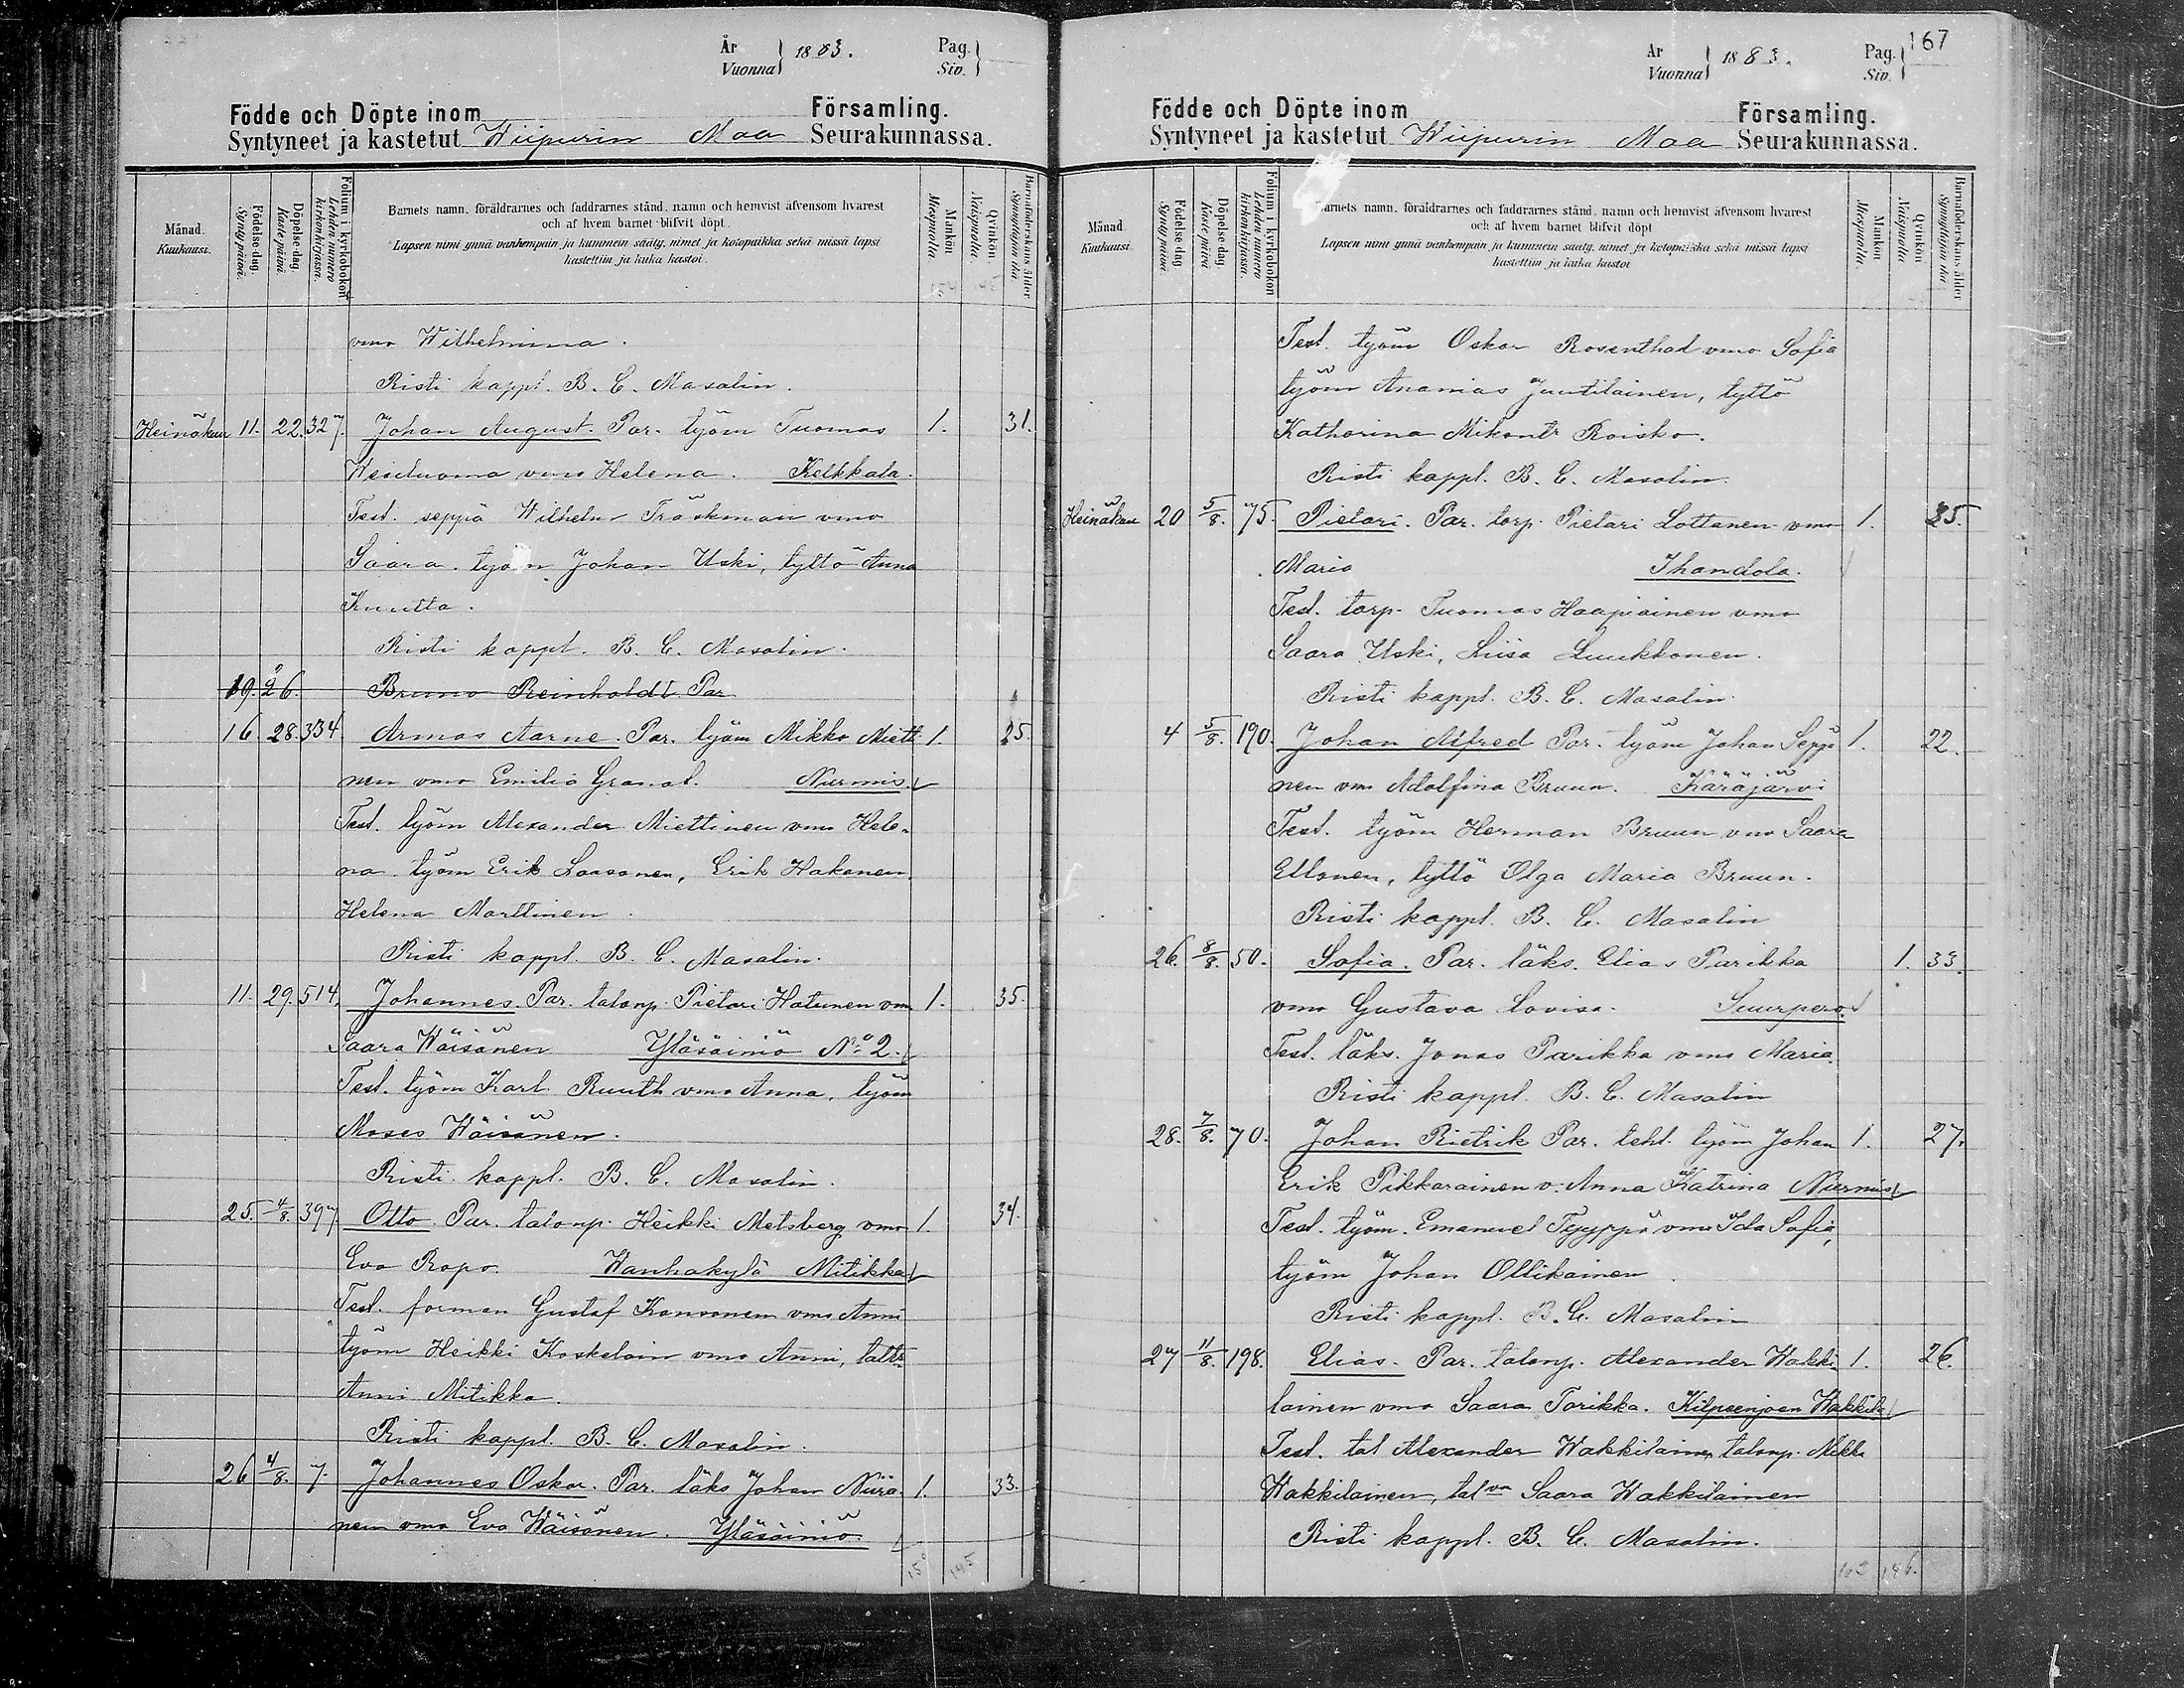 År Vuonna } 1883. Pag. Siv. }
Födde och Döpte inom Församling.
Syntyneet ja kastetut Wiipurin Maa Seurakunnassa.
Månad. Kuukausi.
Födelse-dag. Synty-päivä.
Döpelse-dag. Kaste-päivä.
Folium i kyrkoboken Lehden numero kirkonkirjassa.
Barnets namn, föräldrarnes och faddrarnes stånd, namn och hemvist äfvensom hvarest
och af hvem barnet blifvit döpt.
Lapsen nimi ynnä vanhempain ja kummein sääty, nimet ja kotopaikka sekä missä lapsi
kastettiin ja kuka kastoi.
Mankön Miespuolta.
Qvinkön Naispuolta.
Barnaföderskans ålder Synnyttäjän ikä.
vmo Wilhelmina.
Risti kappl. B. C. Masalin.
Heinäkuu 11. 22. 327. Johan August. Par. työm Tuomas 1. 31.
Wesiluoma vmo Helena. Kelkkala.
Test. seppä Wilhelm Träskman vmo
Saara. työm Johan Uski, tyttö Anna
Kuutta.
Risti kappl. B. C. Masalin.
19. 26. Bruno Reinhold Par
16. 28. 334 Armas Aarne. Par. työm Mikko Mietti 1. 25.
nen vmo Emilia Granat. Nurmis.
Test. työm Alexander Miettinen vmo Hele-
na. työm Erik Laasonen, Erik Hakanen
Helena Marttinen.
Risti kappl. B. C. Masalin.
11. 29. 514. Johannes. Par. talonp. Pietari Hatunen vm 1. 35.
Saara Wäisänen Yläsäiniö No 2.
Test. työm Karl Ruuth vmo Anna, työm
Moses Wäisänen.
Risti kappl. B. C. Masalin.
25. 4/8. 397 Otto. Par. talonp. Heikki Metsberg vmo 1. 34.
Eva Ropo. Wanhakylä Mitikka
Test. forman Gustaf Kansonen vmo Anni
työm Heikki Koskelain vmo Anni, taltr
Anni Mitikka.
Risti kappl. B. C. Masalin.
26 4/8. 7. Johannes Oskar. Par. läks Johan Niira- 1. 33.
nen vmo Eva Wäisönen. Yläsäiniö
145
År Vuonna } 1883. Pag. Siv. } 167
Födde och Döpte inom Församling.
Syntyneet ja kastetut Wiipurin Maa Seurakunnassa.
Månad Kuukausi.
Födelse-dag Synty-päivä.
Döpelse-dag Kaste-päivä
Folium i kyrkoboken Lehden numero kirkonkirjassa.
arnets namn, föräldrarnes och faddrarnes stånd, namn och hemvist äfvensom hvarest
och af hvem barnet blifvit döpt
Lapsen nimi ynnä vanhempain ja kummein sääty, nimet ja kotopaikka sekä missä lapsi
kastettiin ja kuka kastoi
Mankön Miespuolta.
Qvinkön Naispuolta.
Barnaföderskans ålder Synnyttäjän ikä
Test. työm Oskar Rosenthal vmo Sofia
työm Ananias Juutilainen, tyttö
Katharina Mikontr Roisko.
Risti kappl. B. C. Masalin.
Heinäkuu 20 5/8. 75. Pietari. Par. torp. Pietari Lottanen vmo 1. 35.
Maria Ihandola.
Test. torp. Tuomas Haapiainen vmo
Saara Uski, Liisa Luukkonen.
Risti kappl. B. C. Masalin.
4 5/8. 190. Johan Alfred Par. työm Johan Seppä 1. 22.
nen vm Adolfina Bruun. Käräjärvi
Test. työm Herman Bruun vmo Saara
Ellonen, tyttö Olga Maria Bruun.
Risti kappl. B. C. Masalin
26. 8/8. 50. Sofia. Par. läks. Elias Parikka 1. 33.
vmo Gustava Lovisa. Suurpero.
Test. läks. Jonas Parikka vmo Maria.
Risti kappl. B. C. Masalin
28. 7/8. 70. Johan Rietrik Par. teht. työm Johan 1. 27.
Erik Pikkarainen v. Anna Katrina Nurmis
Test. työm. Emanuel Tyyppä vmo Ida Sofia,
työm Johan Ollikainen.
Risti kappl. B. C. Masalin
27 11/8. 198. Elias. Par. talonp. Alexander Wakki 1. 26.
lainen vmo Saara Torikka. Kilpeenjoen Wakkila
Test. tal Alexander Wakkilainen talonp. Mikko
Wakkilainen, tal vn Saara Wakkilainen
Risti kappl. B. C. Masalin.
146.